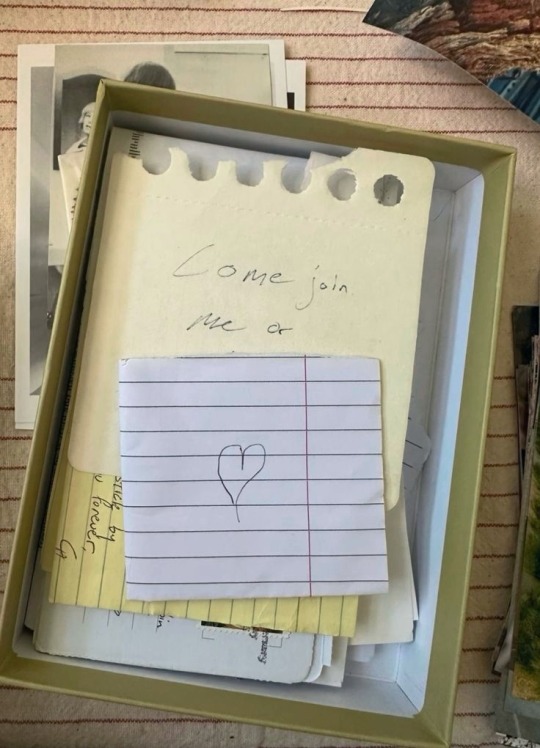 Come join
me or
stick by
forever,